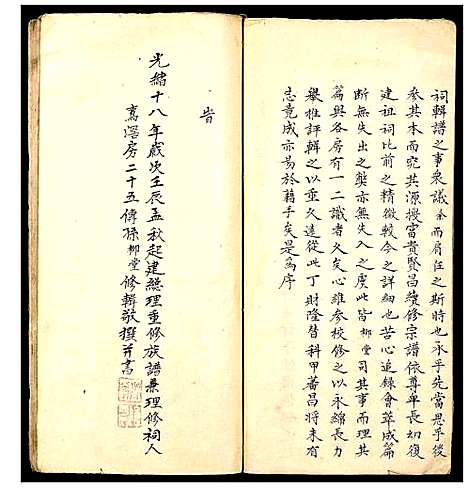 祠輯譜之事衆議余而肩任之斯時也承乎先當思乎後
參其本而究其源援富貴賢昌纘修宗譜依尊卑長幼復
建祖祠比前之精微較今之詳細也苦心追錄會萃成篇
断無失出之弊亦無失入之虞此皆郴堂司其事而理其
篇與各房有一二識者久矣心維參校修之以永綿長力
舉推評輯以垂久遠從此丁財隆替科甲蕃昌將来有
志竟成亦易於藉手矣是為序
旹
光緒十八年歲次壬辰孟秋起建總理重修族譜兼理修祠人
房二十五傳孫郴堂修輯敬撰并書